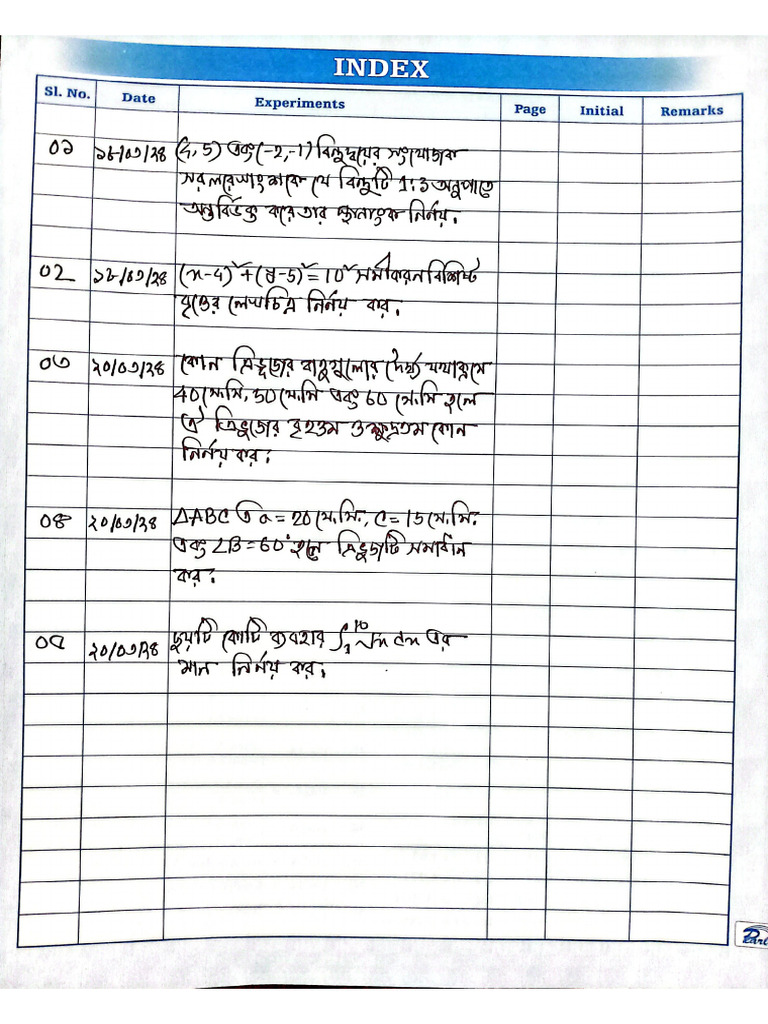 INDEX
Sl. No. Date Experiments Page Initial Remarks
০১ ১৮/০৩/২৪ (4, 5) এবং (-2, -1) বিন্দুদ্বয়ের সংযোজক
সরলরেখাংশকে যে বিন্দুটি 1:3 অনুপাতে
অন্তর্বিভক্ত করে তার স্থানাংক নির্নয়.
০2 ১৮/০৩/২৪ (x-4)² + (y-5)² = 10² সমীকরন বিশিষ্ট
বৃত্তের লেখচিত্র নির্নয় কর.
০৩ ২০/০৩/২৪ কোন ত্রিভুজের বাহুগুলোর দৈর্ঘ্য যথাক্রমে
40 সে.মি, 50 সে.মি এবং 60 সে.মি হলে
ঐ ত্রিভুজের বৃহত্তম ও ক্ষুদ্রতম কোন
নির্নয় কর:
০৪ ২০/০৩/২৪ ΔABC এ a = 20 সে.মি., c = 15 সে.মি.
এবং ∠B = 60° হলে ত্রিভুজটি সমাধান
কর:
০৫ ২০/০৩/২৪ ছয়টি কোটি ব্যবহার ∫₁¹⁰ √x dx এর
মান নির্নয় কর: